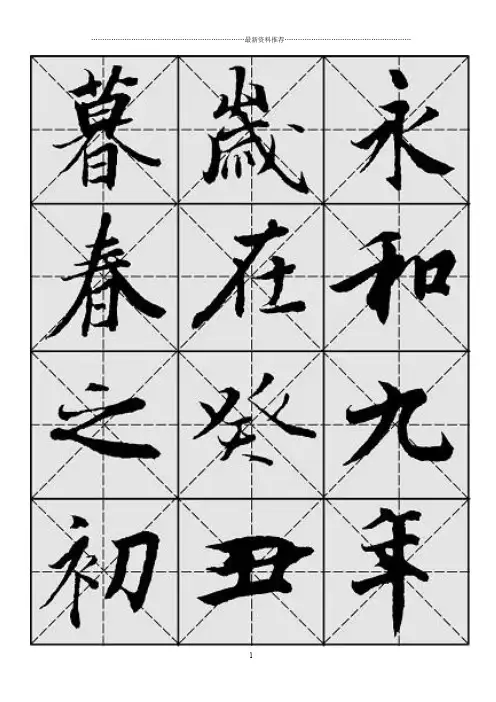 最新资料推荐
永和九年
歲在癸丑
暮春之初
1